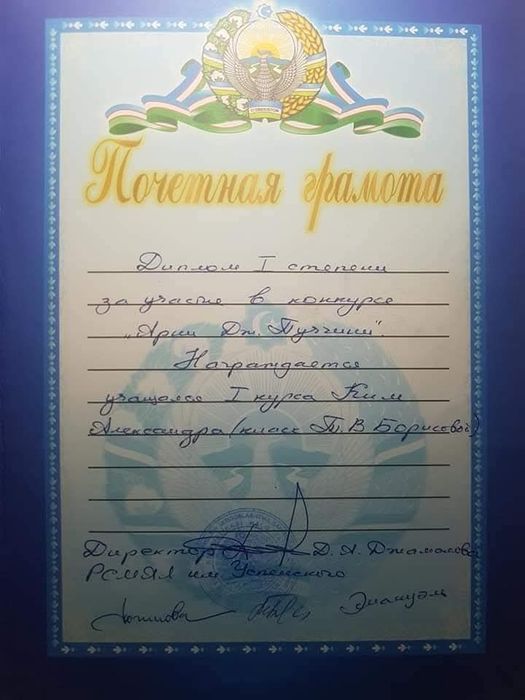 Почетная грамота
Диплом I степени
за участие в конкурсе
„Арии Дж. Пуччини".
Награждается
учащаяся I курса Ким
Александра (класс Т.В Борисовой)
Директор Д.А. Джамалова
РСМАЛ им Успенского
Эмануэль